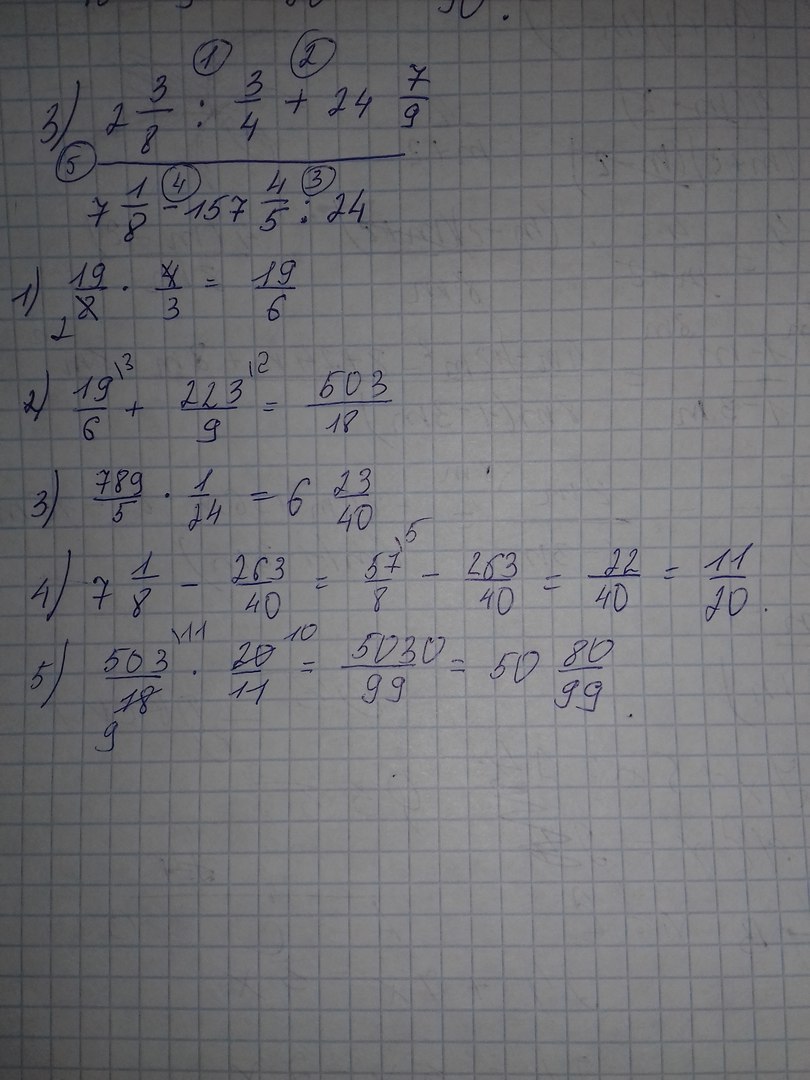 ① ②
3) 2 3/8 : 3/4 + 24 7/9
⑤ ④ ③
7 1/8 - 157 4/5 : 24
1) 19/8 · 4/3 = 19/6
2
2) 19/6 \3 + 223/9 \2 = 503/18
3) 789/5 · 1/24 = 6 23/40
4) 7 1/8 - 263/40 = 57/8 \5 - 263/40 = 22/40 = 11/20.
5) 503/18 \11 · 20/11 10 = 5030/99 = 50 80/99.
9